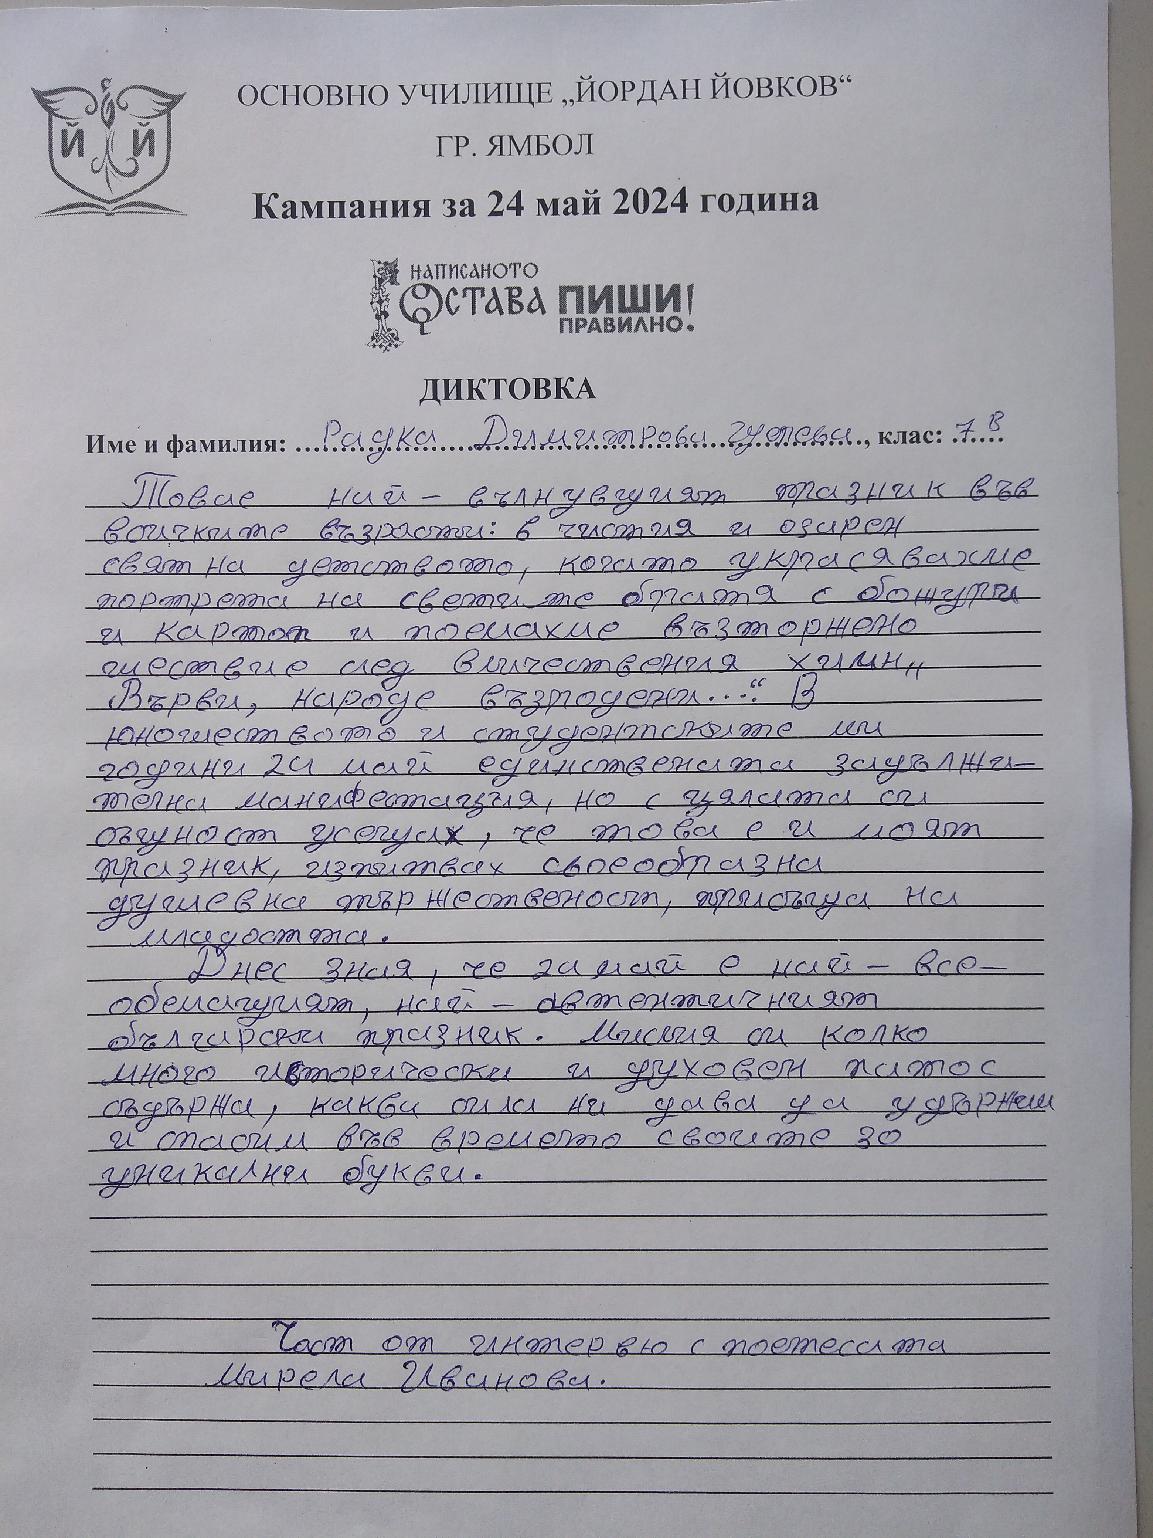 Й Й
ОСНОВНО УЧИЛИЩЕ „ЙОРДАН ЙОВКОВ“
ГР. ЯМБОЛ
Кампания за 24 май 2024 година
НАПИСАНОТО
ОСТАВА ПИШИ!
ПРАВИЛНО.
ДИКТОВКА
Име и фамилия: Радка Димитрова, клас: 7 в
Това е най - вълнуващият празник във
всичките възрасти: в чистия и озарен
свят на детството, когато украсявахме
портрета на светите братя с божури
и картон и поемахме възторжено
шествие след величествения химн „
Върви, народе възродени...“ В
юношеството и студентските ми
години 24 май единствената задължи-
телна манифестация, но с цялата си
същност усещах, че това е и моят
празник, изпитвах своеобразна
душевна тържественост, присъща на
младостта.
Днес зная, че 24 май е най - все-
обемащият, най - автентичният
български празник. Мисля си колко
много исторически и духовен патос
съдържа, каква сила ни дава да удържим
и спасим във времето своите 30
уникални букви.
Част от интервю с поетесата
Мирела Иванова.